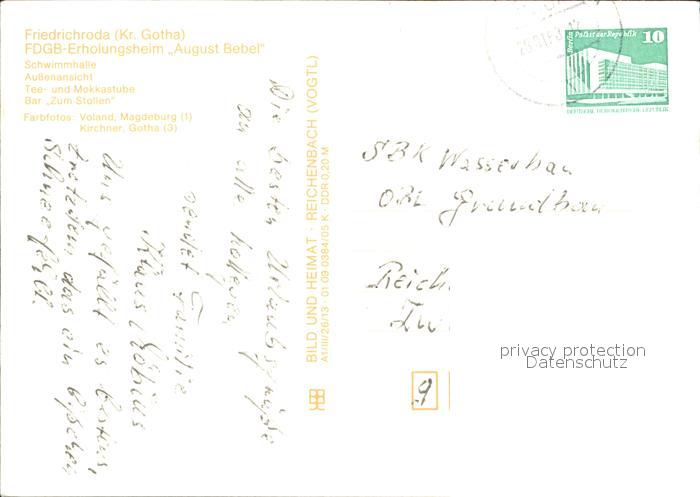 Friedrichroda (Kr. Gotha)
FDGB-Erholungsheim „August Bebel“
Schwimmhalle
Außenansicht
Tee- und Mokkastube
Bar „Zum Stollen“
Farbfotos: Voland, Magdeburg (1)
Kirchner, Gotha (3)
Die besten Urlaubsgrüße
an alle Kollegen
sendet Familie
Klaus Möbius
Uns gefällt es bestens,
trotzdem das ein bißchen
Schnee fehlt.
BILD UND HEIMAT · REICHENBACH (VOGTL)
A1/III/26/13 · 01 09 0384/05 K · DDR 0,20 M
Berlin Palast der Republik 10
DEUTSCHE DEMOKRATISCHE REPUBLIK
SBK Wasserbau
OBL
Reich
9
privacy protection
Datenschutz